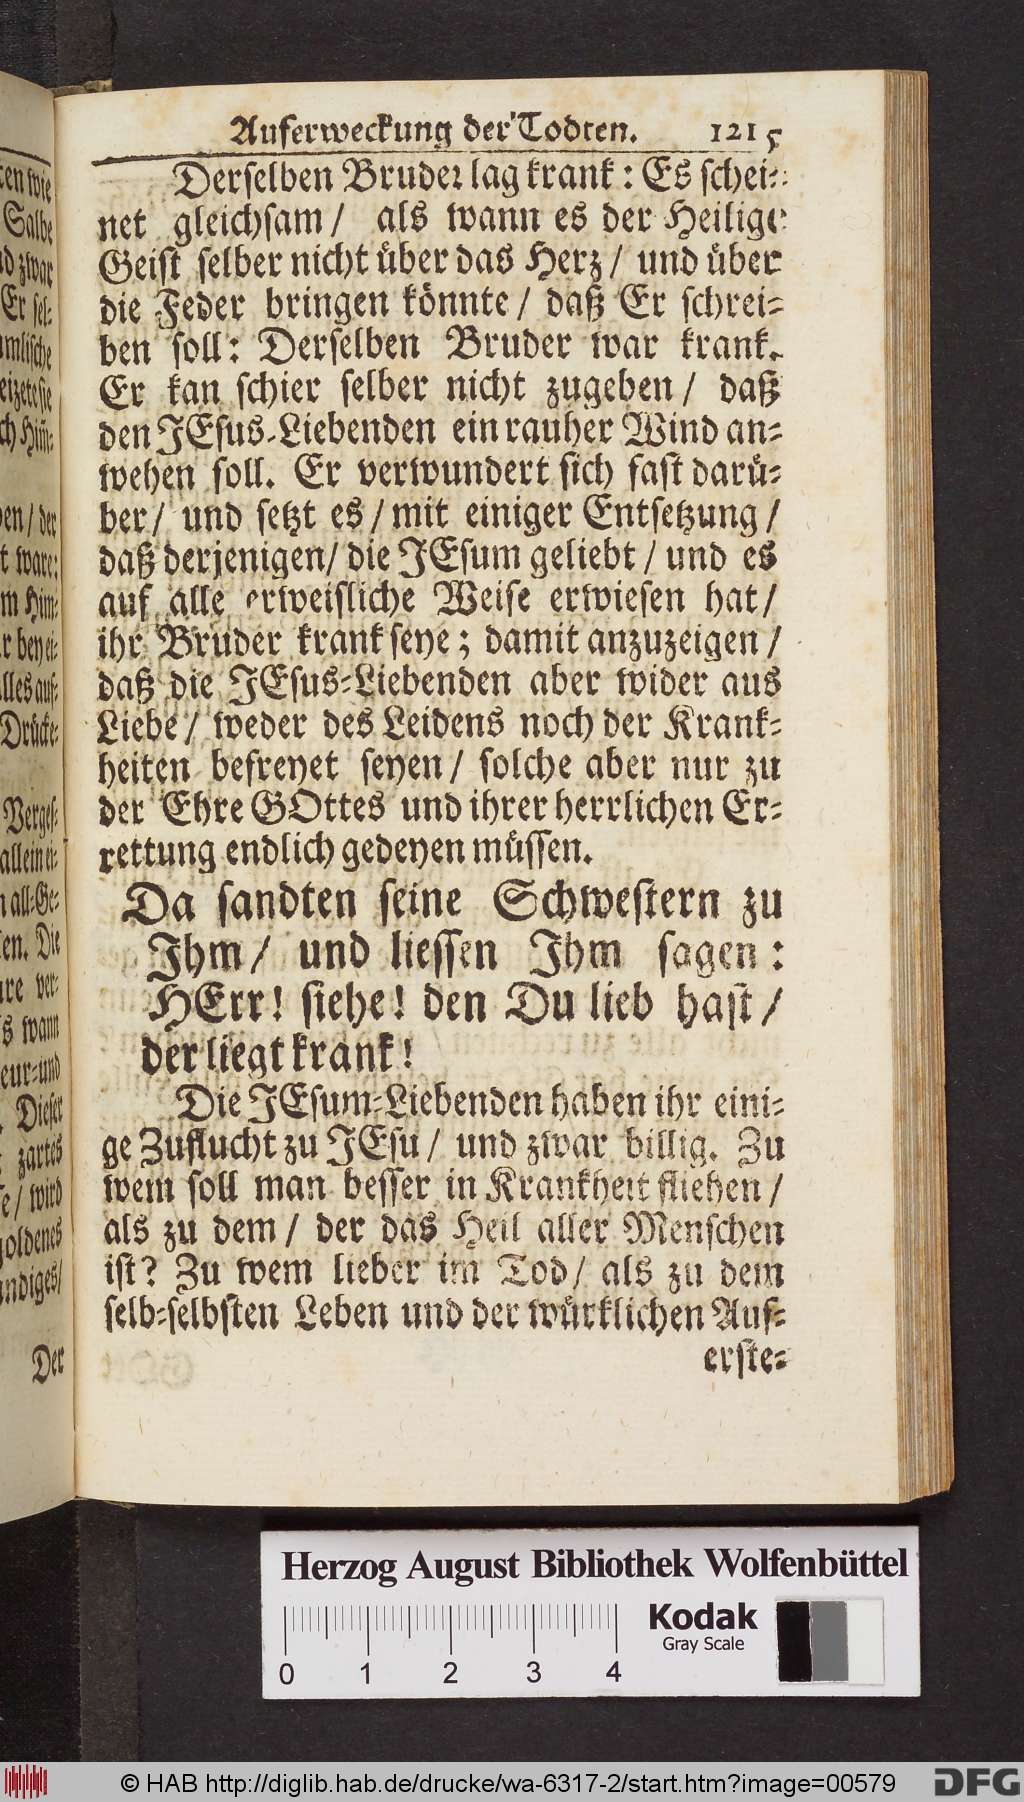 Auferweckung der Todten. 1215
Derselben Bruder lag krank: Es schei-
net gleichsam/ als wann es der Heilige
Geist selber nicht über das Herz/ und über
die Feder bringen könnte/ daß Er schrei-
ben soll: Derselben Bruder war krank.
Er kan schier selber nicht zugeben/ daß
den JEsus-Liebenden ein rauher Wind an-
wehen soll. Er verwundert sich fast darü-
ber/ und setzt es/ mit einiger Entsetzung/
daß derjenigen/ die JEsum geliebt/ und es
auf alle erweisliche Weise erwiesen hat/
ihr Bruder krank seye; damit anzuzeigen/
daß die JEsus-Liebenden aber wider aus
Liebe/ weder des Leidens noch der Krank-
heiten befreyet seyen/ solche aber nur zu
der Ehre GOttes und ihrer herrlichen Er-
rettung endlich gedeyen müssen.
Da sandten seine Schwestern zu
Ihm/ und liessen Ihm sagen:
HErr! siehe! den Du lieb hast/
der liegt krank!
Die JEsum-Liebenden haben ihr eini-
ge Zuflucht zu JEsu/ und zwar billig. Zu
wem soll man besser in Krankheit fliehen/
als zu dem/ der das Heil aller Menschen
ist? Zu wem lieber im Tod/ als zu dem
selb-selbsten Leben und der würklichen Auf-
erste-
Salbe
nd zwar
Er sel-
ben/ der
Drücke-
Verges-
allein ei-
all-Ge-
Die
wann
Dieser
zartes
wird
goldenes
Der
Herzog August Bibliothek Wolfenbüttel
Kodak
Gray Scale
0 1 2 3 4
© HAB http://diglib.hab.de/drucke/wa-6317-2/start.htm?image=00579
DFG